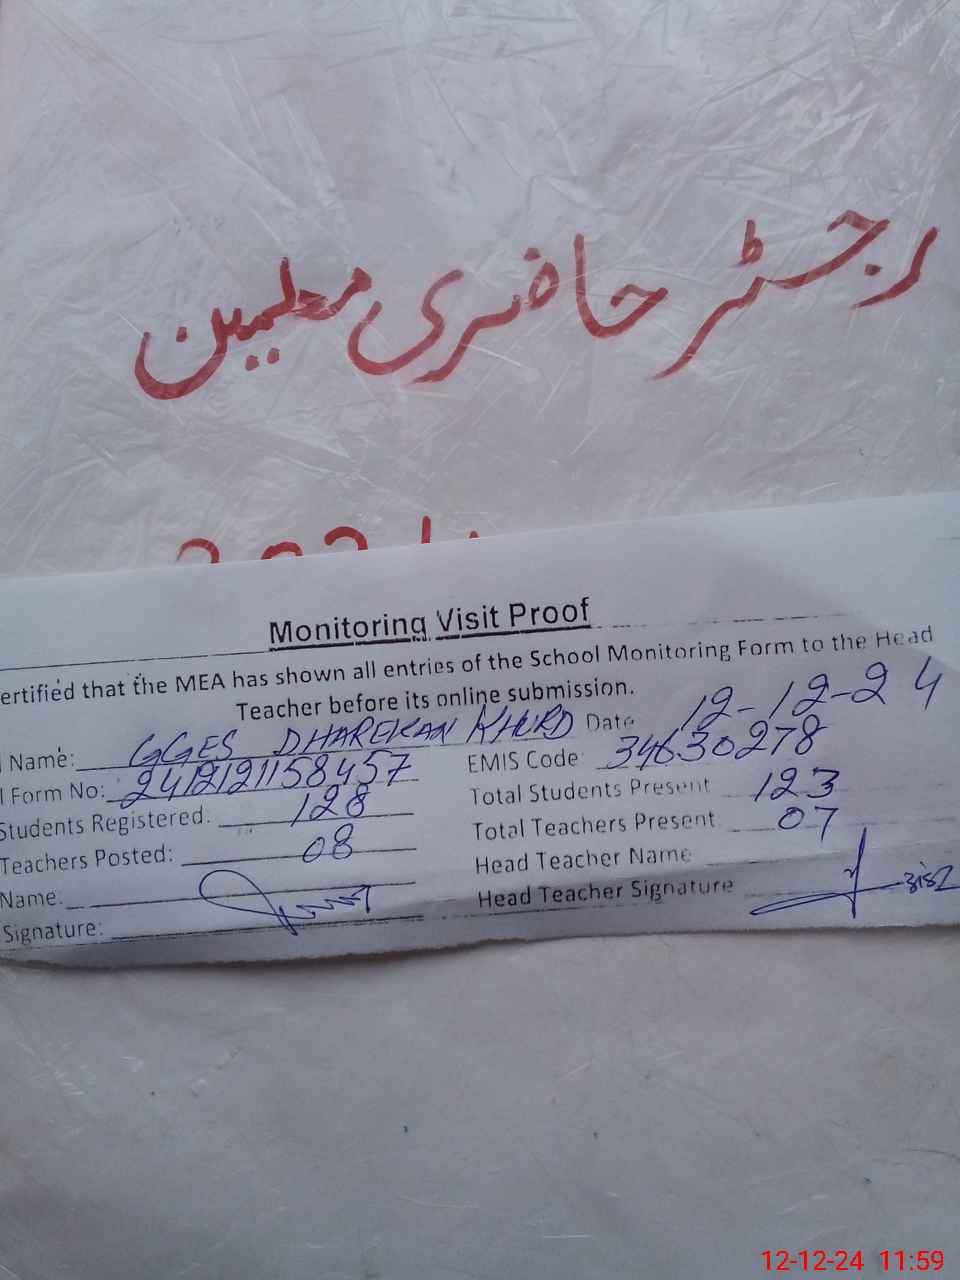 رجسٹر حاضری معلمین
Monitoring Visit Proof
ertified that the MEA has shown all entries of the School Monitoring Form to the Head
Teacher before its online submission.
Name: GGES DHAREKAN KHURD Date 12-12-24
Form No: 2412121158457 EMIS Code: 34630278
Students Registered: 128 Total Students Present 123
Teachers Posted: 08 Total Teachers Present 07
Name: Head Teacher Name
Signature: Head Teacher Signature
12-12-24 11:59